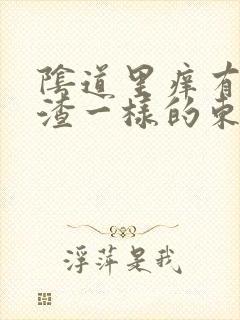 陰道里痒有
渣一様的东
浮萍是我